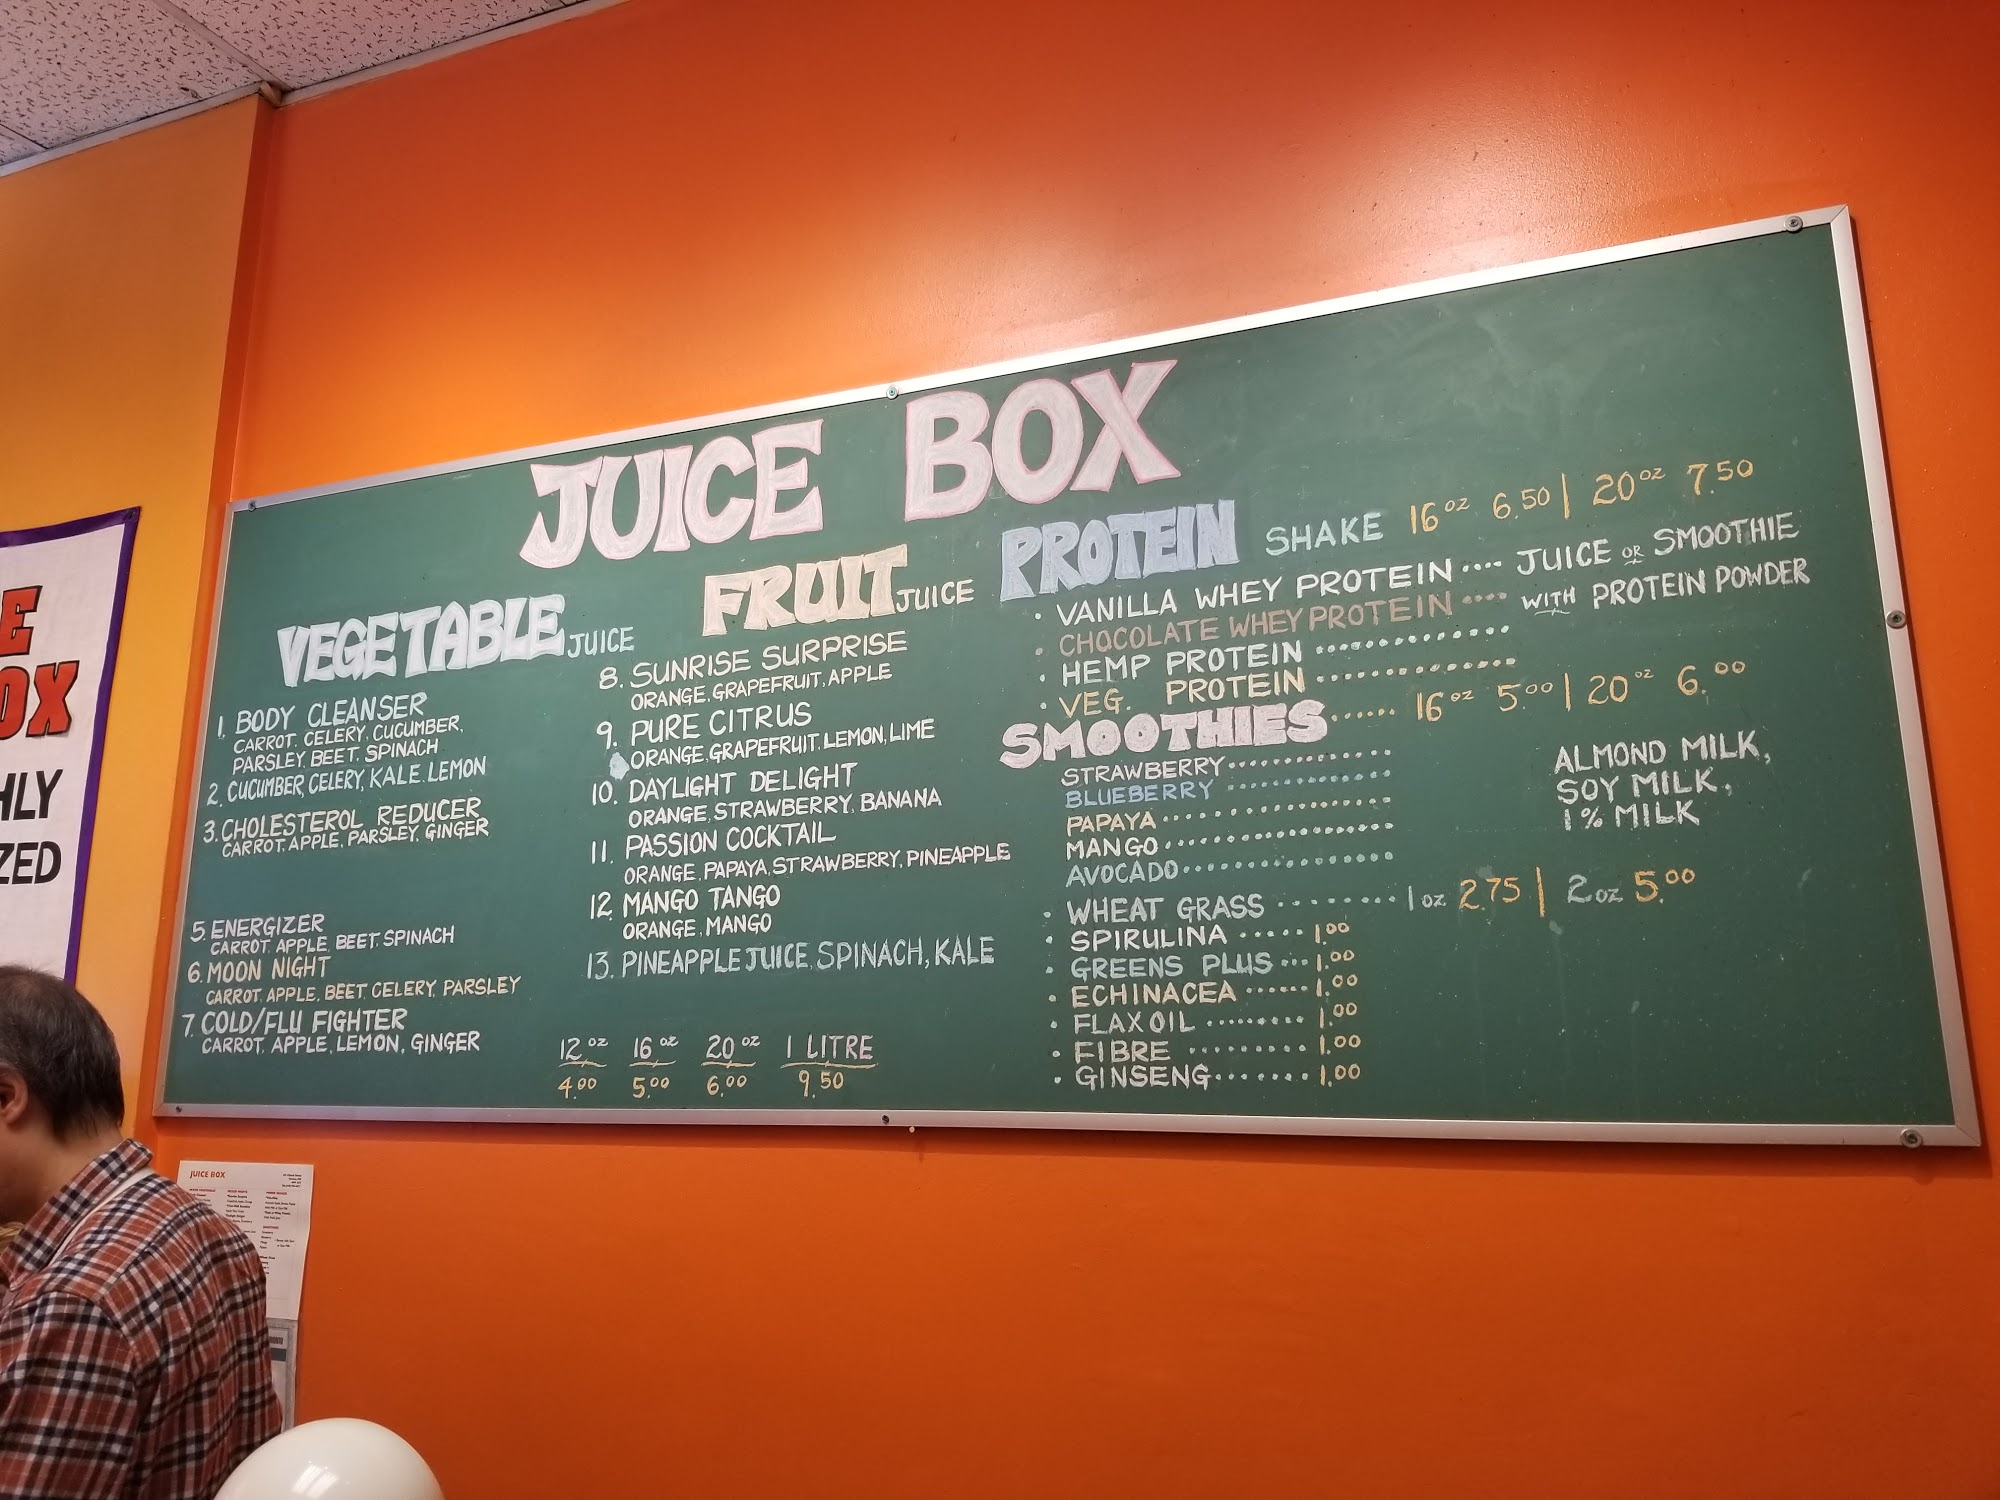 JUICE BOX
VEGETABLE JUICE
1. BODY CLEANSER
CARROT, CELERY, CUCUMBER,
PARSLEY, BEET, SPINACH
2. CUCUMBER, CELERY, KALE, LEMON
3. CHOLESTEROL REDUCER
CARROT, APPLE, PARSLEY, GINGER
5. ENERGIZER
CARROT, APPLE, BEET, SPINACH
6. MOON NIGHT
CARROT, APPLE, BEET, CELERY, PARSLEY
7. COLD/FLU FIGHTER
CARROT, APPLE, LEMON, GINGER
FRUIT JUICE
8. SUNRISE SURPRISE
ORANGE, GRAPEFRUIT, APPLE
9. PURE CITRUS
ORANGE, GRAPEFRUIT, LEMON, LIME
10. DAYLIGHT DELIGHT
ORANGE, STRAWBERRY, BANANA
11. PASSION COCKTAIL
ORANGE, PAPAYA, STRAWBERRY, PINEAPPLE
12. MANGO TANGO
ORANGE, MANGO
13. PINEAPPLE JUICE, SPINACH, KALE
12 oz 16 oz 20 oz 1 LITRE
4.00 5.00 6.00 9.50
PROTEIN SHAKE 16 oz 6.50 | 20 oz 7.50
• VANILLA WHEY PROTEIN .... JUICE OR SMOOTHIE
• CHOCOLATE WHEY PROTEIN .... WITH PROTEIN POWDER
• HEMP PROTEIN .............
• VEG. PROTEIN .............
SMOOTHIES ...... 16 oz 5.00 | 20 oz 6.00
STRAWBERRY .............
BLUEBERRY .............
PAPAYA .................
MANGO .................
AVOCADO ................
ALMOND MILK,
SOY MILK,
1% MILK
• WHEAT GRASS ......... 1 oz 2.75 | 2 oz 5.00
• SPIRULINA ..... 1.00
• GREENS PLUS ... 1.00
• ECHINACEA ...... 1.00
• FLAX OIL ........ 1.00
• FIBRE ......... 1.00
• GINSENG ....... 1.00
E
OX
HLY
ZED
JUICE BOX